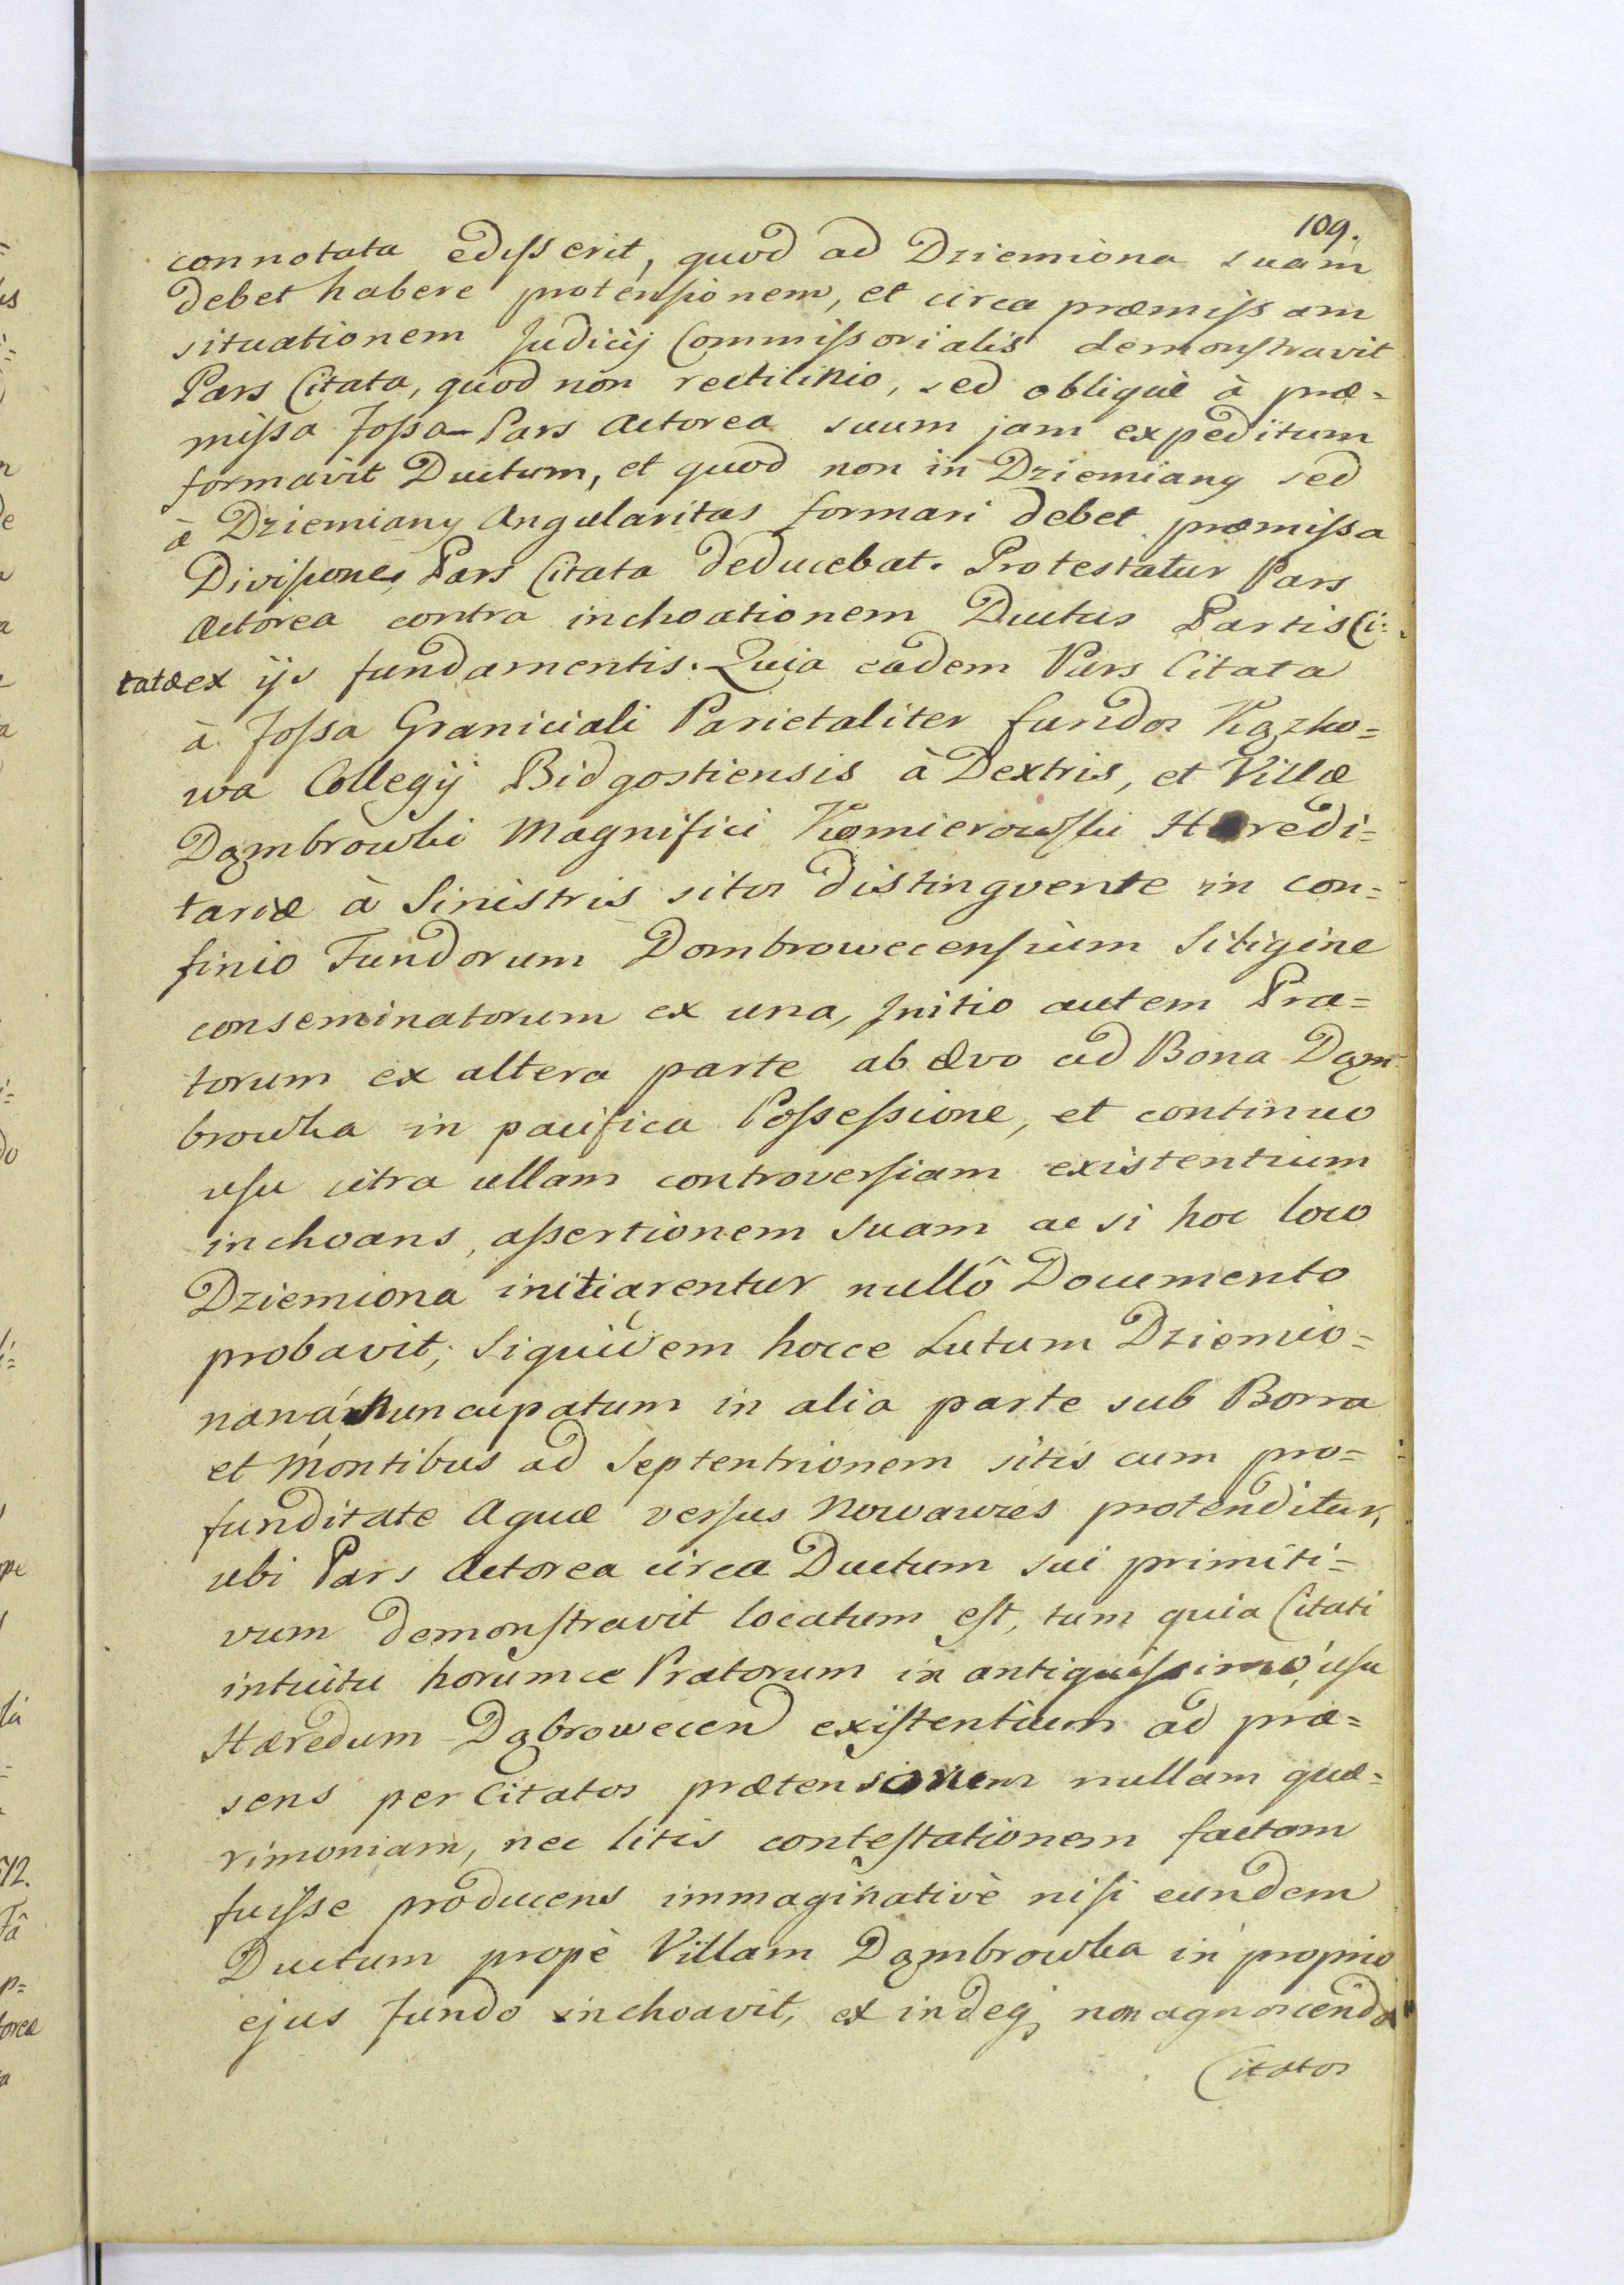 109.
connotata edisserit, quod ad Dziemiona suam
debet habere protensionem, et circa præmissam
situationem Judicij Commissorialis demonstravit
Pars Citata, quod non rectilinio, sed obliquè à præ=
missa Fossa Pars Actorea suum jam expeditum
formavit Ductum, et quod non in Dziemiany sed
à Dziemiany Angularitas formari debet præmissa
Divisione, Pars Citata deducebat. Protestatur Pars
Actorea contra inchoationem Ductus Partis Ci=
tatæ ex ijs fundamentis. Quia eadem Pars Citata
à Fossa Graniciali Parietaliter fundos Kązko=
wa Collegij Bidgostiensis à Dextris, et Villæ
Dąmbrowki Magnifici Komierowski Hæredi=
tariæ à Sinistris sitos distingvente in con=
finio Fundorum Dombrowecensium Siligine
conseminatorum ex una, Initio autem Pra=
torum ex altera parte ab ævo ad Bona Dąm
browka in pacifica Possessione, et continuo
usu citra ullam controversiam existentium
inchoans, assertionem suam ac si hoc loco
Dziemiona initiarentur nullô Documento
probavit; Siquidem hocce Lutum Dziemio=
nana nuncupatum in alia parte sub Borra
et Montibus ad Septentrionem sitis cum pro=
funditate Aquæ versus Nowawies protenditur,
ubi Pars Actorea circa Ductum sui primiti=
vum demonstravit locatum est, tum quia Citati
intuitu horumce Pratorum in antiquissimo usu
Hæredum Dąbrowecen existentium ad præ=
sens per Citatos prætensionem nullam quæ=
rimoniam, nec litis contestationem factam
fuisse producens immaginativè nisi eundem
Ductum propè Villam Dąmbrowka in proprio
ejus fundo inchoavit, ex indeq; non agnoscendo
Citatos